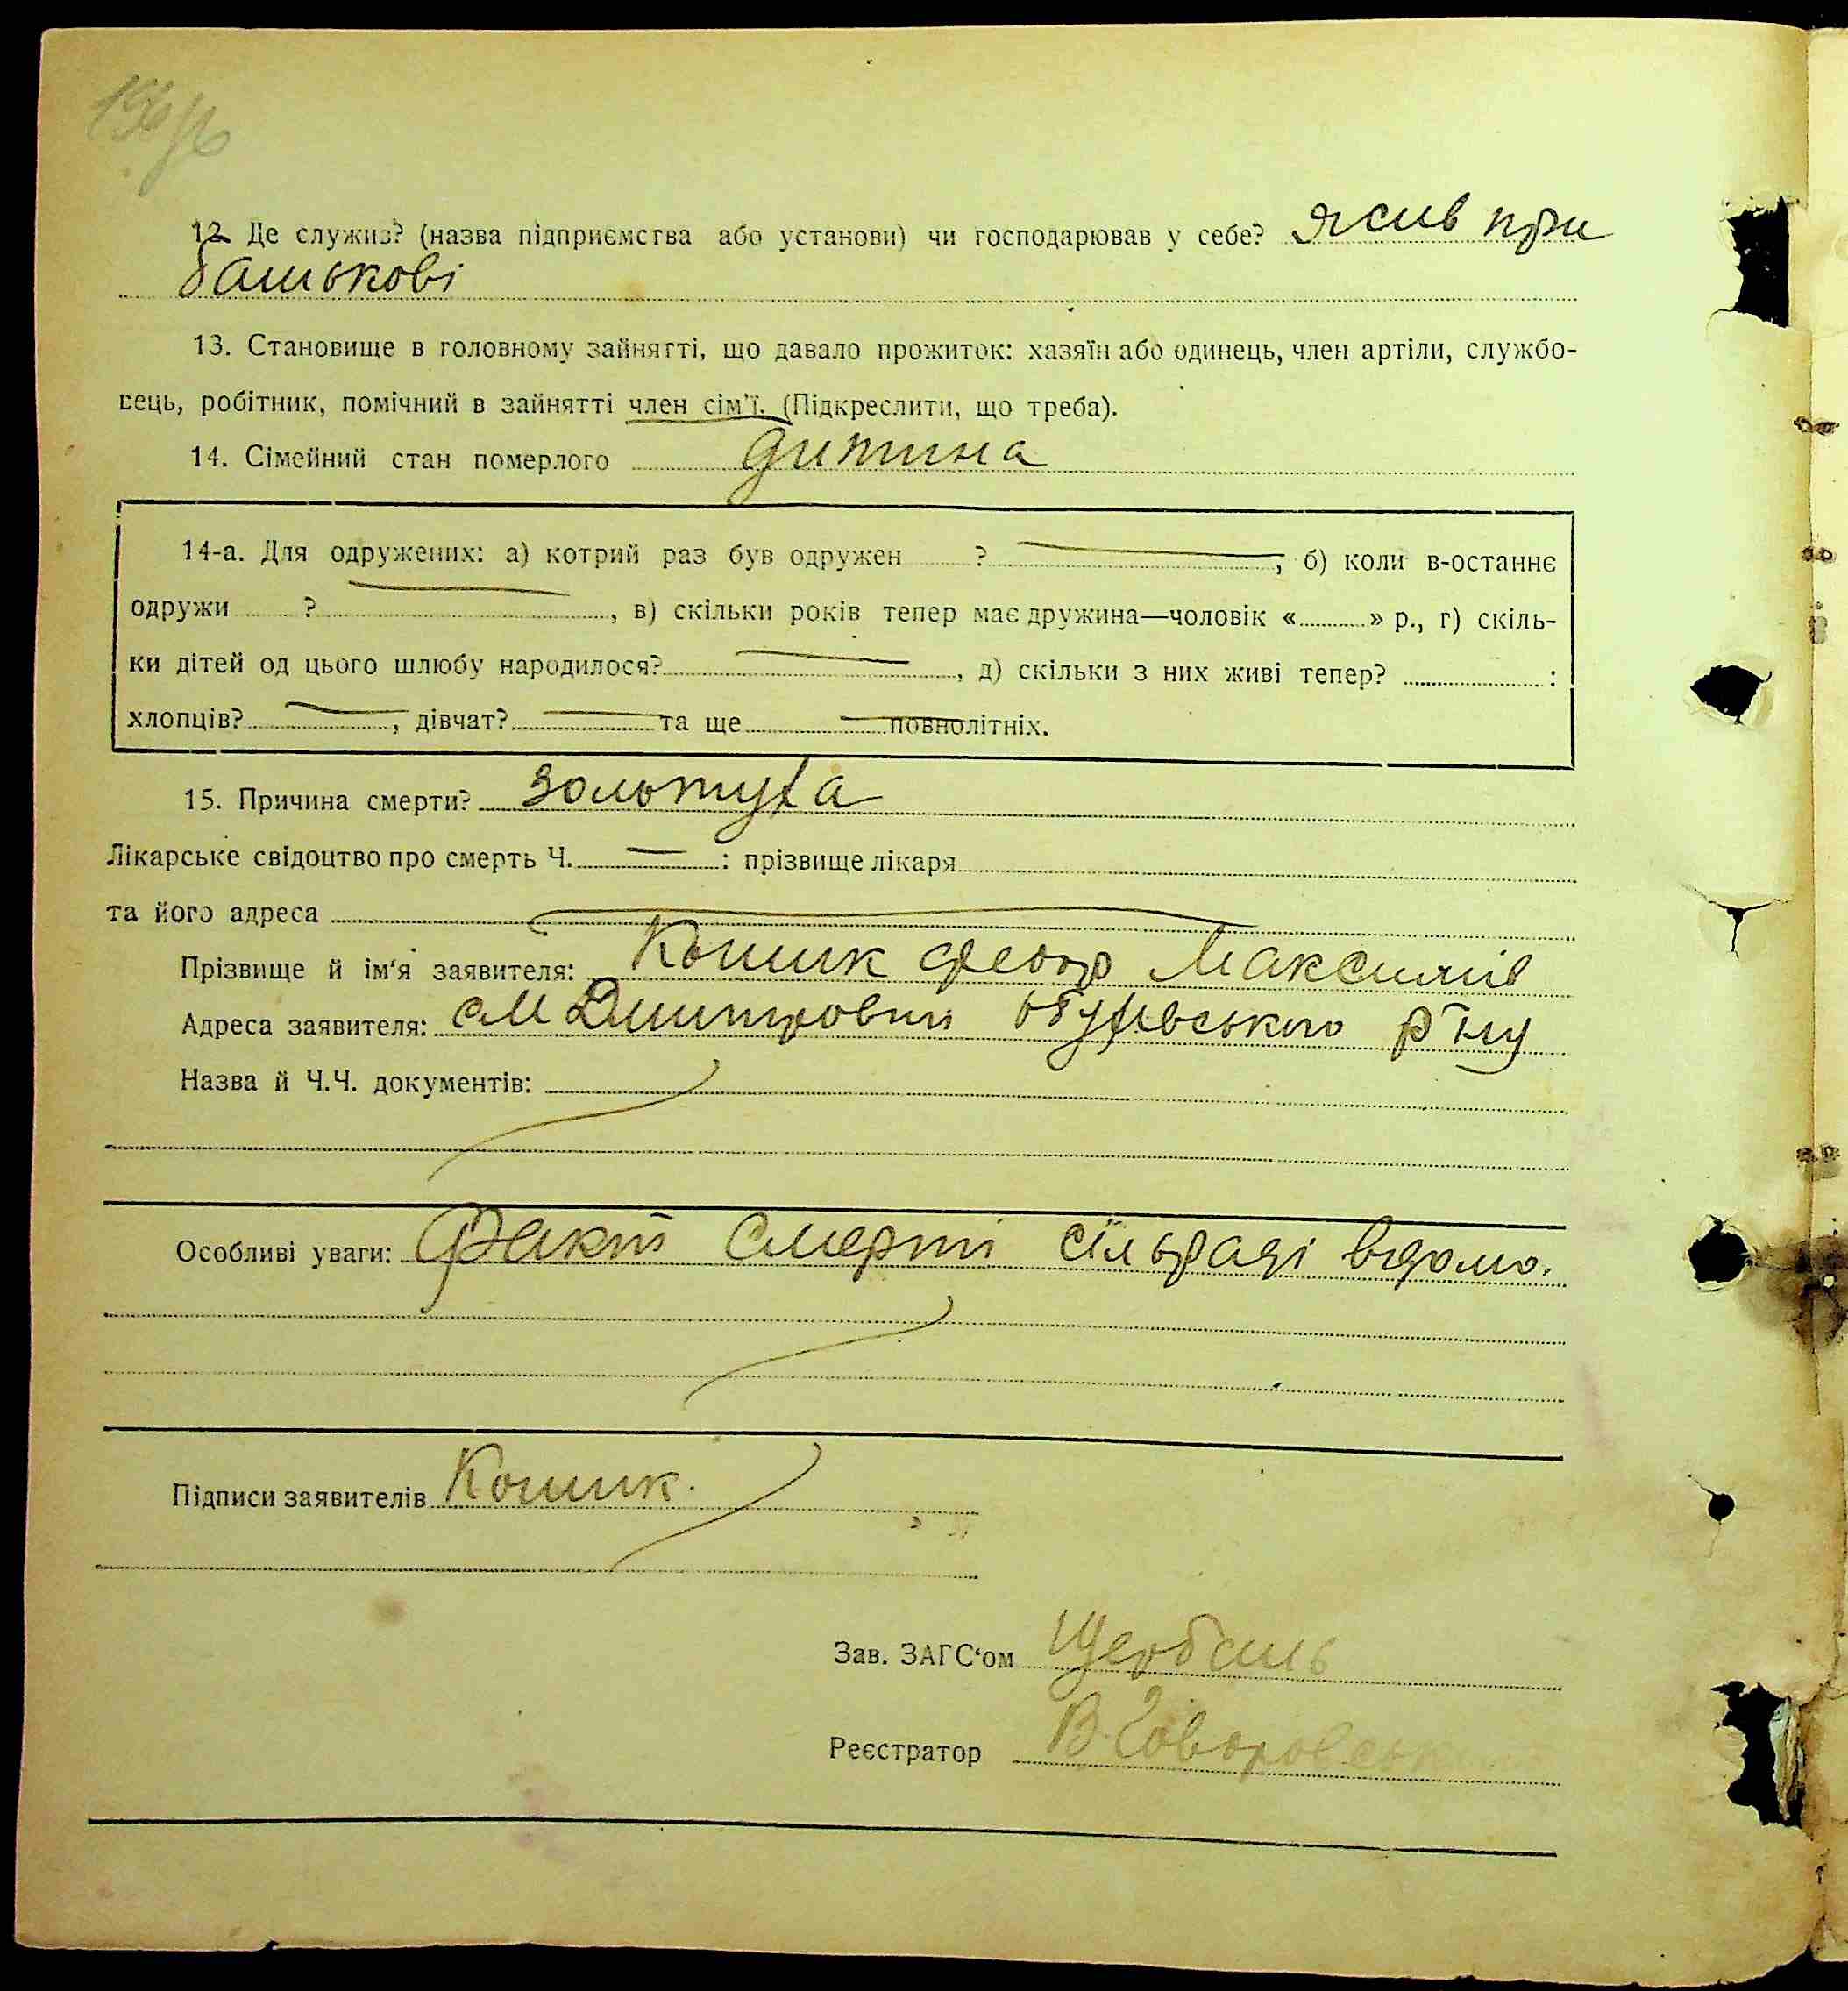 12. Де служив? (назва підприємства або установи) чи господарював у себе? жив при
батькові
13. Становище в головному зайнятті, що давало прожиток: хазяїн або одинець, член артіли, службо-
вець, робітник, помічний в зайнятті член сім'ї. (Підкреслити, що треба).
14. Сімейний стан померлого дитина
14-а. Для одружених: а) котрий раз був одружен ? —, б) коли в-останнє
одружи ? —, в) скільки років тепер має дружина—чоловік « » р., г) скіль-
ки дітей од цього шлюбу народилося? —, д) скільки з них живі тепер? :
хлопців? —, дівчат? — та ще — повнолітніх.
15. Причина смерти? золотуха
Лікарське свідоцтво про смерть Ч. — : прізвище лікаря
та його адреса
Прізвище й ім'я заявителя: Кошик Федор Максимів
Адреса заявителя: см Дмитровти Обухівського р-ну
Назва й Ч.Ч. документів:
Особливі уваги: Факт смерті сільраді відомо.
Підписи заявителів Кошик.
Зав. ЗАГС'ом
Реєстратор В.